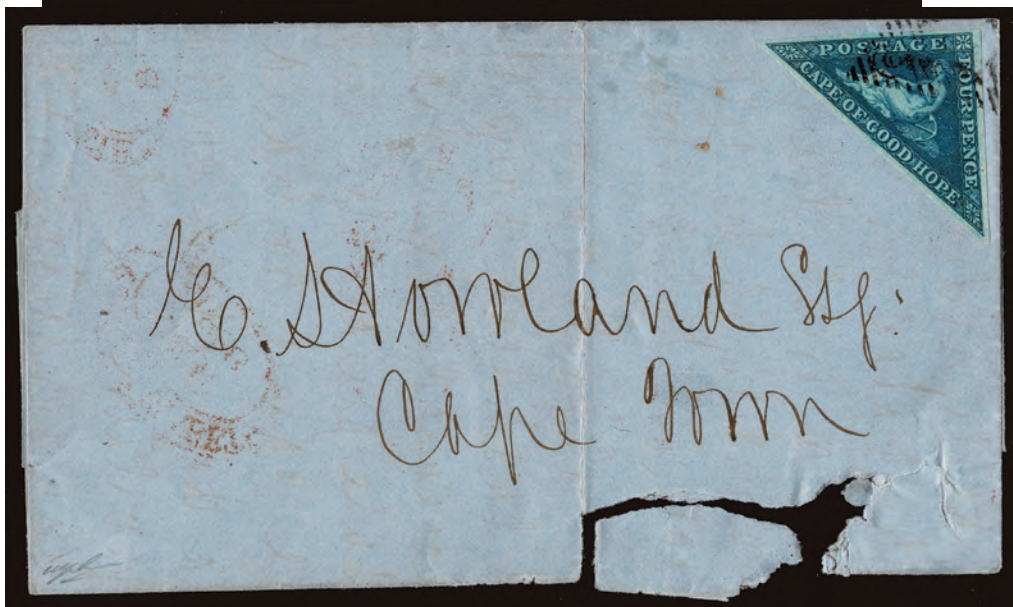 POSTAGE
FOUR PENCE
CAPE OF GOOD HOPE
C. Howland Esq.
Cape Town